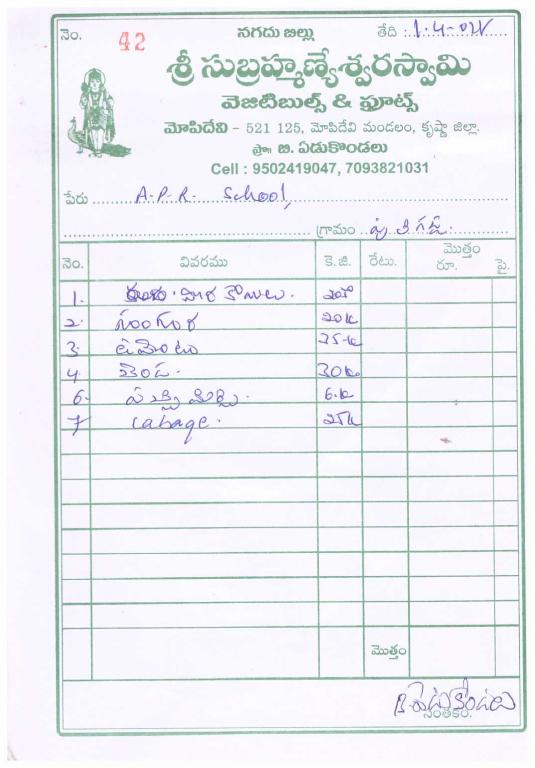 నెం. 42 నగదు బిల్లు తేది : 1.4.02
శ్రీ సుబ్రహ్మణ్యేశ్వరస్వామి
వెజిటిబుల్స్ & ఫ్రూట్స్
మోపిదేవి - 521 125, మోపిదేవి మండలం, కృష్ణా జిల్లా.
ప్రొ. బి. ఏడుకొండలు
Cell : 9502419047, 7093821031
పేరు A.P.R. School,
గ్రామం
నెం. వివరము కె.జి. రేటు. మొత్తం రూ. పై.
1. కాయలు.
2. గోంగూర 20k
3. టమోటో 25k
4. దొండ. 30k
6. పచ్చిమిర్చి. 6.k
7 cabage. 25k
మొత్తం
B. ఏడుకొండలు
సంతకం.